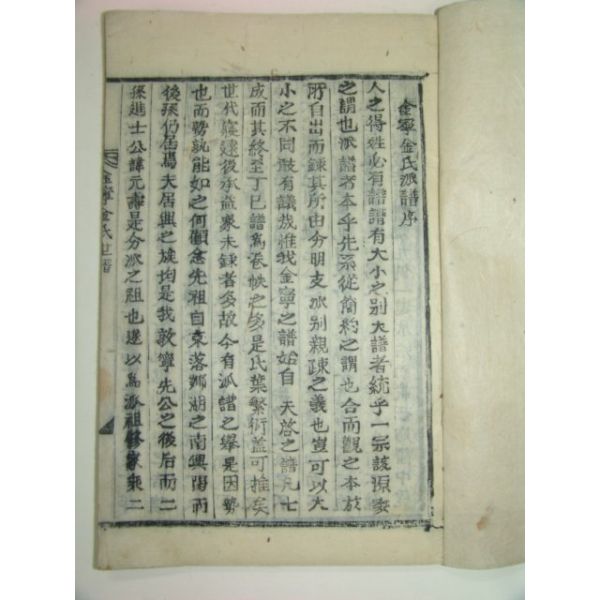 金寧金氏派譜序
人之得姓必有譜譜有大小之別大譜者統乎一宗該源委
之謂也派譜者本乎先系從簡約之謂也合而觀之本於
所自出而錄其所由分明支派別親疎之義也豈可以大
小之不同敢有議哉惟我金寧之譜始自 天啓之譜凡七
成而其終至丁巳譜爲卷帙之多是氏葉繁衍蓋可推矣
世代寢遠後承益衆未錄者多故今有派譜之擧是因勢
也而勢孰能如之何顧念先祖自東落鄕湖之南興陽而
後孫仍居焉夫居興之族均是我敦寧先公之後后而二
孫進士公諱元壽是分派之祖也遂以爲派祖修家乘二
金寧金氏世譜